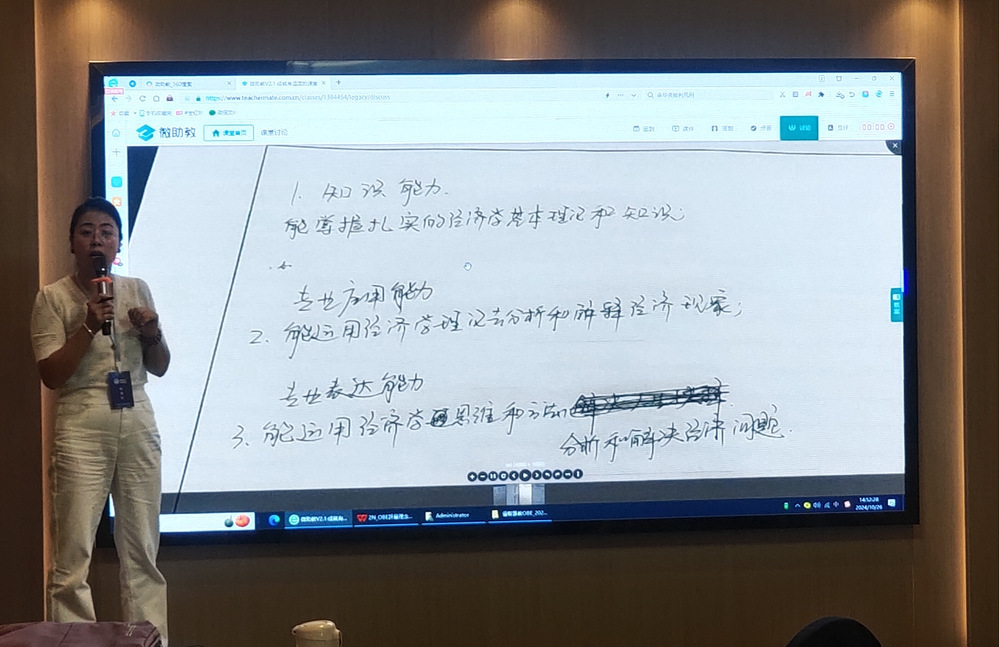 https://www.teachermate.com.cn
微助教
课堂首页
课堂讨论
00:00
1. 知识能力.
能掌握扎实的经济学基本理论和知识;
专业应用能力
2. 能运用经济学理论去分析和解释经济现象;
专业表达能力
3. 能运用经济学思维和方法
分析和解决经济问题.
Administrator
14:52:28
2024/10/26